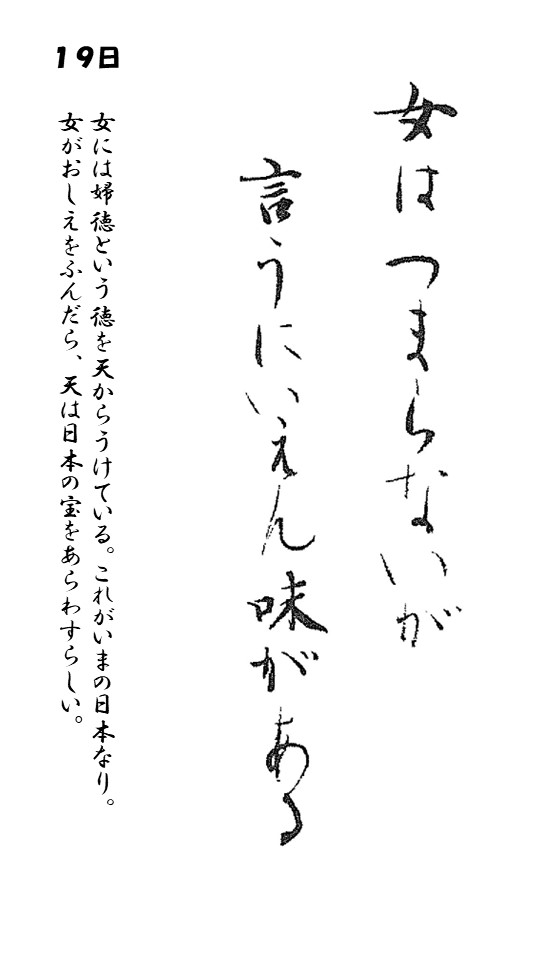 19日
女はつまらないが
言うにいえん味がある
女には婦徳という徳を天からうけている。これがいまの日本なり。
女がおしえをふんだら、天は日本の宝をあらわすらしい。